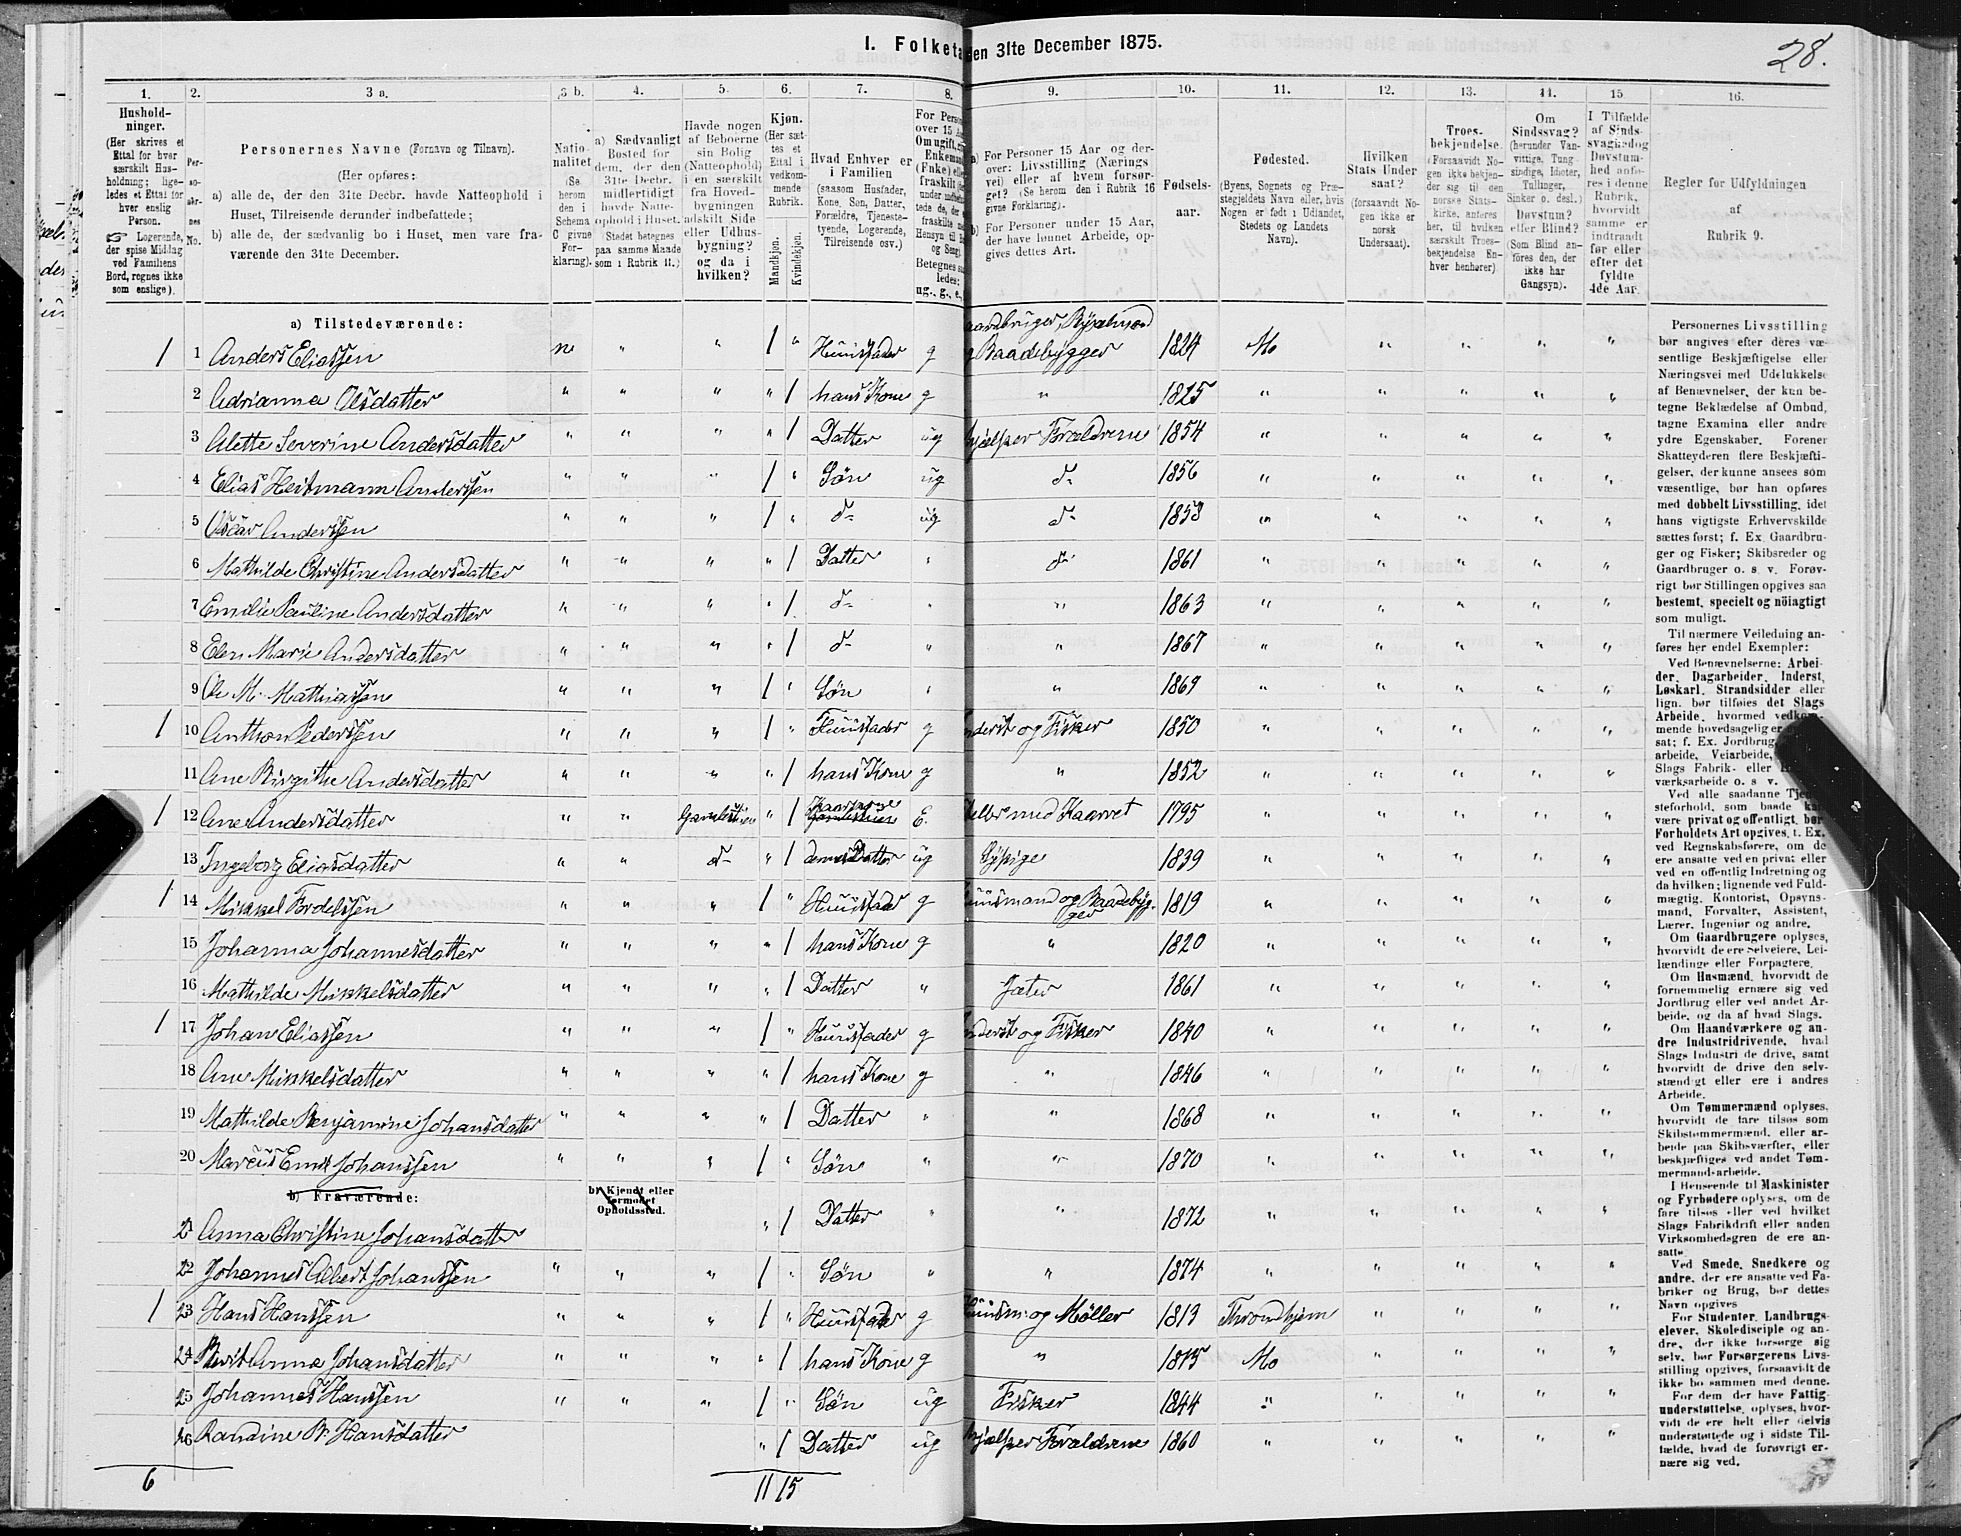 I. Folketæ den 31te December 1875.
28.
1. 2. 3 a. 3 b. 4. 5. 6. 7. 8. 9. 10. 11. 12. 13. 14. 15. 16.
Hushold-
ninger.
(Her skrives et
Ettal for hver
særskilt Hus-
holdning; lige-
ledes et Ettal for
hver enslig
Person.
☞ Logerende,
der spise Middag
ved Familiens
Bord, regnes ikke
som enslige).
Per-
so-
ner-
nes
No.
Personernes Navne (Fornavn og Tilnavn).
(Her opføres:
a) alle de, der den 31te Decbr. havde Natteophold i
Huset, Tilreisende derunder indbefattede;
b) alle de, der sædvanlig bo i Huset, men vare fra-
værende den 31te December.
Natio-
nalitet
(Se
herom
den i
Schema
C givne
For-
klaring).
a) Sædvanligt
Bosted for
dem, der den
31te Decbr.
midlertidigt
havde Natte-
ophold i Huset.
(Stedet betegnes
paa samme Maade
som i Rubrik 11.)
Havde nogen
af Beboerne
sin Bolig
(Natteophold)
i en særskilt
fra Hoved-
bygningen
adskilt Side
eller Udhus-
bygning?
og da i
hvilken?
Kjøn.
(Her sæt-
tes et
Ettal i
vedkom-
mende
Rubrik.
Mandkjøn.
Kvindekjøn.
Hvad Enhver er
i Familien
(saasom Husfader,
Kone, Søn, Datter,
Forældre, Tjeneste-
tyende, Logerende,
Tilreisende osv.)
For Perso
over 15 A
Om ugift,
Enkema
(Fnke) elle
fraskilt
og Seng
Betegnes
ledes:
ug., g., e.,
a) For Personer 15 Aar og der-
over: Livsstilling (Nærings
vei) eller af hvem forsør-
get? (Se herom den i Rubrik 16
givne Forklaring).
b) For Personer under 15 Aar,
der have lønnet Arbeide, op-
gives dettes Art.
Fødsels-
aar.
Fødested.
(Byens, Sognets og Præ-
stegjeldets Navn eller, hvis
Nogen er født i Udlandet,
Stedets og Landets
Navn).
Hvilken
Stats Under
saat?
(forsaavidt No-
gen ikke er
norsk
Undersaat).
Troes-
bekjendelse.
(Forsaavidt No-
gen ikke bekjen-
der sig til den
norske Stats-
kirke, anføres
her, til hvilken
særskilt Troes-
bekjendelse En-
hver henhører)
Om
Sindssvag?
(herunder Van-
vittige, Tung-
sindige, Idioter,
Tullinger,
Sinker o. desl.)
Døvstum?
eller Blind?
(Som Blind an-
føres den, der
ikke har
Gangsyn).
I Tilfælde
af Sinds-
svaghed og
Døvstum-
hed anfø-
res i denne
Rubrik,
hvorvidt
samme er
indtraadt
før eller
efter det
fyldte
4de Aar.
Regler for Udfyldningen
af
Rubrik 9.
a) Tilstedeværende:
1 1 Anders Eliassen n " " 1 " Huusfader g aardbruger, Bÿxelmand g Baadebygger 1824 Mo " " " "
2 Adrianna Olsdatter " " " " 1 hans Kone g " 1825 " " " " "
3 Alette Severine Andersdatter " " " " 1 Datter ug hjælper Forældrene 1854 " " " " "
4 Elias Heitmann Anderssen " " " 1 " Søn ug d- 1856 " " " " "
5 Oscar Anderssen " " " 1 " d- ug d- 1858 " " " " "
6 Mathilde Christine Andersdatter " " " " 1 Datter " d- 1861 " " " " "
7 Emilie Pauline Andersdatter " " " " 1 d- " " 1863 " " " " "
8 Elen Marie Andersdatter " " " " 1 d- " " 1867 " " " " "
9 Ole M. Mathiassen " " " 1 " Søn " " 1869 " " " " "
1 10 Anthon Pederssen " " " 1 " Huusfader g nderst og Fisker 1850 " " " " "
11 Ane Birgithe Andersdatter " " " " 1 hans Kone g " 1852 " " " " "
1 12 Ane Andersdatter " " Gamlestuen " 1 Kaarkone E. Lever med Kaarret 1795 " " " " "
13 Ingeborg Eliasdatter " " d- " 1 dennes Datter ug Sÿpige 1839 " " " " "
1 14 Mikkel Fordelssen " " " 1 " Huusfader g Huusmand og Baadebyg-ger 1819 " " " " "
15 Johanna Johannesdatter " " " " 1 hans Kone g " 1820 " " " " "
16 Mathilde Mikkelsdatter " " " " 1 Datter " Jæter 1861 " " " " "
1 17 Johan Eliassen " " " 1 " Huusfader g nderst og Fisker 1840 " " " " "
18 Ane Mikkelsdatter " " " " 1 hans Kone g " 1846 " " " " "
19 Mathilde Benjamine Johansdatter " " " " 1 Datter " " 1868 " " " " "
20 Marcus Ernst Johanssen " " " 1 " Søn " " 1870 " " " " "
b) Fraværende: b) Kjendt eller
formodet
Opholdssted.
21 Anna Christine Johansdatter " 1 Datter " " 1872 " " " " "
22 Johannes Albert Johanssen " " " 1 " Søn " " 1874 " " " " "
1 23 Hans Hanssen " " " 1 " Huusfader g Huusm: og Møller 1813 Throndhjem " " " "
24 Berit Anna Johansdatter " " " " 1 hans Kone g " 1815 Mo " " " "
25 Johannes Hanssen " " " 1 " Søn ug Fisker 1844 " " " " "
26 Randine B. Hansdatter " 1 Datter ug hjælper Forældrene 1860 " " " " "
6 11 15
Personernes Livsstilling
bør angives efter deres væ-
sentlige Beskjæftigelse eller
Næringsvei med Udelukkelse
af Benævnelser, der kun be-
tegne Beklædelse af Ombud,
tagne Examina eller andre
ydre Egenskaber. Forener
Skatteyderen flere Beskjæfti-
gelser, der kunne ansees som
væsentlige, bør han opføres
med dobbelt Livsstilling, idet
hans vigtigste Erhvervskilde
sættes først; f. Ex. Gaardbru-
ger og Fisker; Skibsreder og
Gaardbruger o. s. v. Forøv-
rigt bør Stillingen opgives saa
bestemt, specielt og nøiagtigt
som muligt.
Til nærmere Veiledning an-
føres her endel Exempler:
Ved Benævnelserne: Arbei-
der, Dagarbeider, Inderst,
Løskarl, Strandsidder eller
lign. bør tilføies det Slags
Arbeide, hvormed vedkom-
mende hovedsagelig er
sat; f. Ex. Jordbrug
arbeide, Veiarbeide,
Slags Fabrik- eller
værksarbeide o. s. v.
Ved alle saadanne Tje
steforhold, som baade kan
være privat og offentligt, bør
Forholdets Art opgives, t. Ex.
ved Regnskabsførere, om de
ere ansatte ved en privat eller
ved en offentlig Indretning og
da hvilken; lignende ved Fuld-
mægtig, Kontorist, Opsyns-
mand, Forvalter, Assistent,
Lærer, Ingeniør og andre.
Om Gaardbrugere oplyses,
hvorvidt de ere Selveiere, Lei-
lændinge eller Forpagtere.
Om Husmænd, hvorvidt de
fornemmelig ernære sig ved
Jordbrug eller ved andet Ar-
beide, og da af hvad Slags.
Om Haandværkere og an-
dre Industridrivende, hvad
Slags Industri de drive, samt
hvorvidt de drive den selv-
stændigt eller ere i andres
Arbeide.
Om Tømmermænd oplyses,
hvorvidt de fare tilsøs som
Skibstømmermænd, eller ar-
beide paa Skibsværfter, eller
beskjæftiges ved andet Tøm-
mermandsarbeide.
I Henseende til Maskinister
og Fyrbødere oplyses, om de
fare tilsøs eller ved hvilket
Slags Fabrikdrift eller anden
Virksomhedsgren de ere an-
satte
Ved Smede, Snedkere og
andre, der ere ansatte ved Fa-
briker og Brug, bør dettes
Navn opgives
For Studenter, Landbrugs-
elever, Skoledisciple og an-
dre, der ikke forsørge sig
selv, bør Forsørgerens Livs-
stilling opgives, forsaavidt de
ikke bo sammen med denne.
For dem, der have Fattig-
understøttelse, oplyses, hvor-
vidt de ere helt eller delvis
understøttede og i sidste Til-
fælde, hvad de forøvrigt er-
nære sig ved.